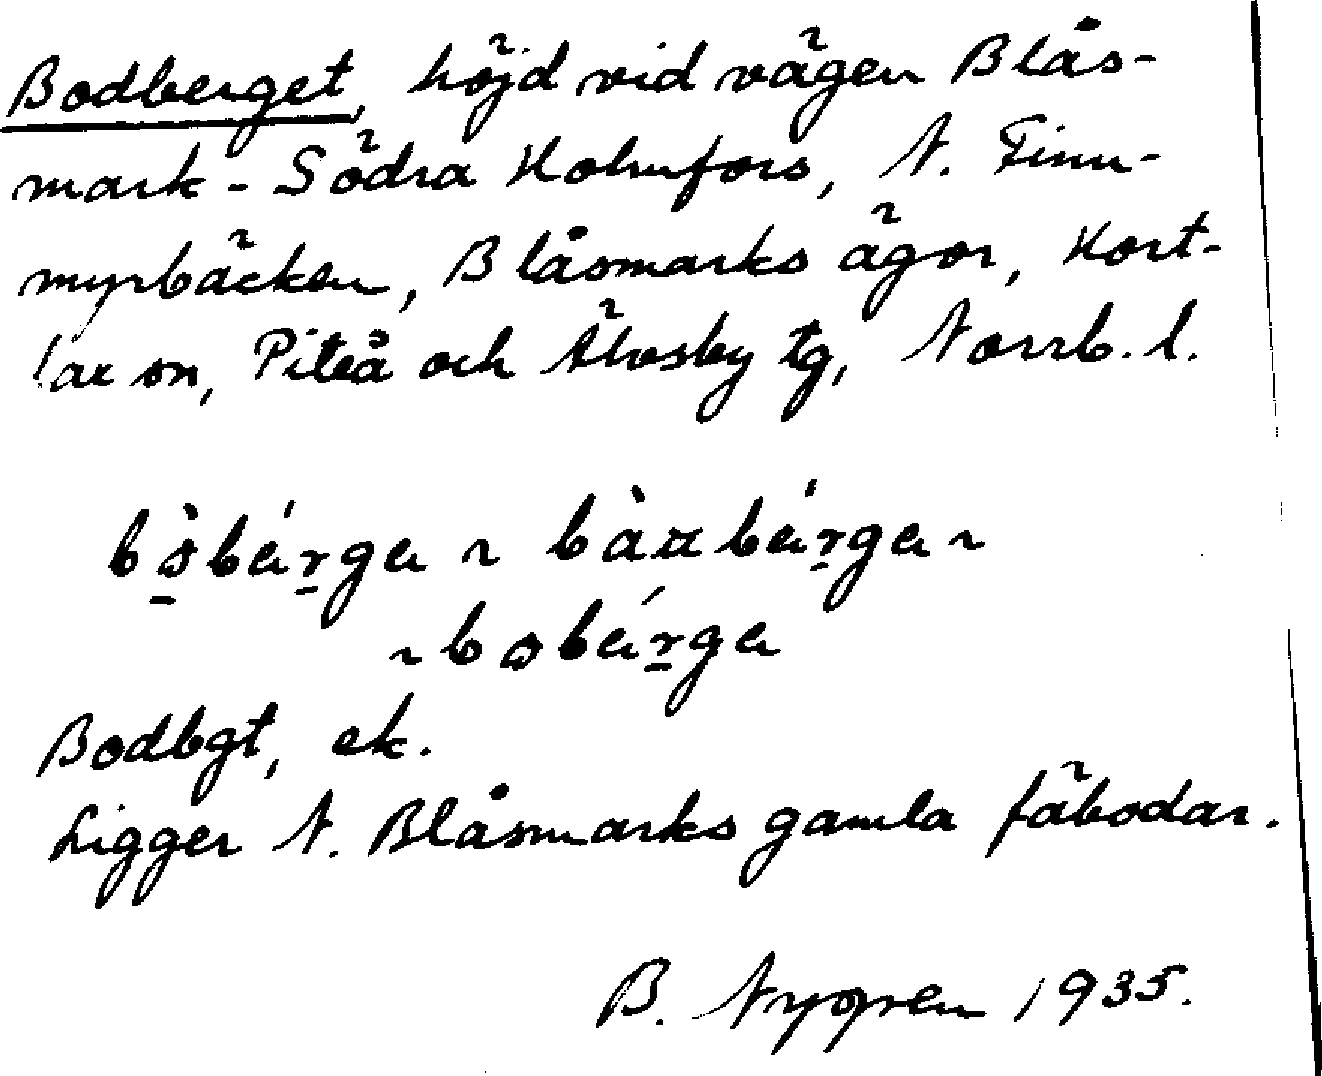 Bodberget, höjd vid vägen Blås-
mark - Södra Holmfors, N. Finn-
myrbäcken, Blåsmarks ägor, Hort-
lax sn, Piteå och Älvsby tg, Norrb. l.
bòbérga ~ bàxbérga ~
~ bobérga
Bodbgt, ek.
Ligger N. Blåsmarks gamla fäbodar.
B. Nygren 1935.